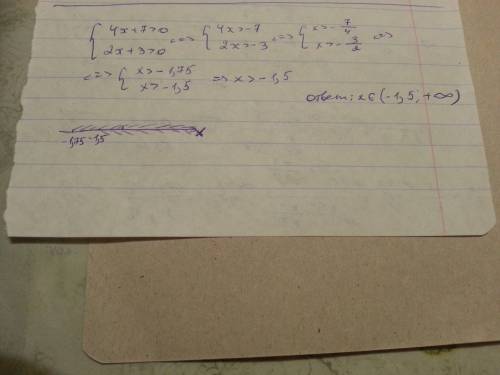 { 4x+7>0 2x+3>0 <=> { 4x>-7 2x>-3 <=> { x>-7/4 x>-3/2 <=>
<=> { x>-1,75 x>-1,5 => x>-1,5
Ответ: x∈(-1,5; +∞)
-1,75 -1,5 x